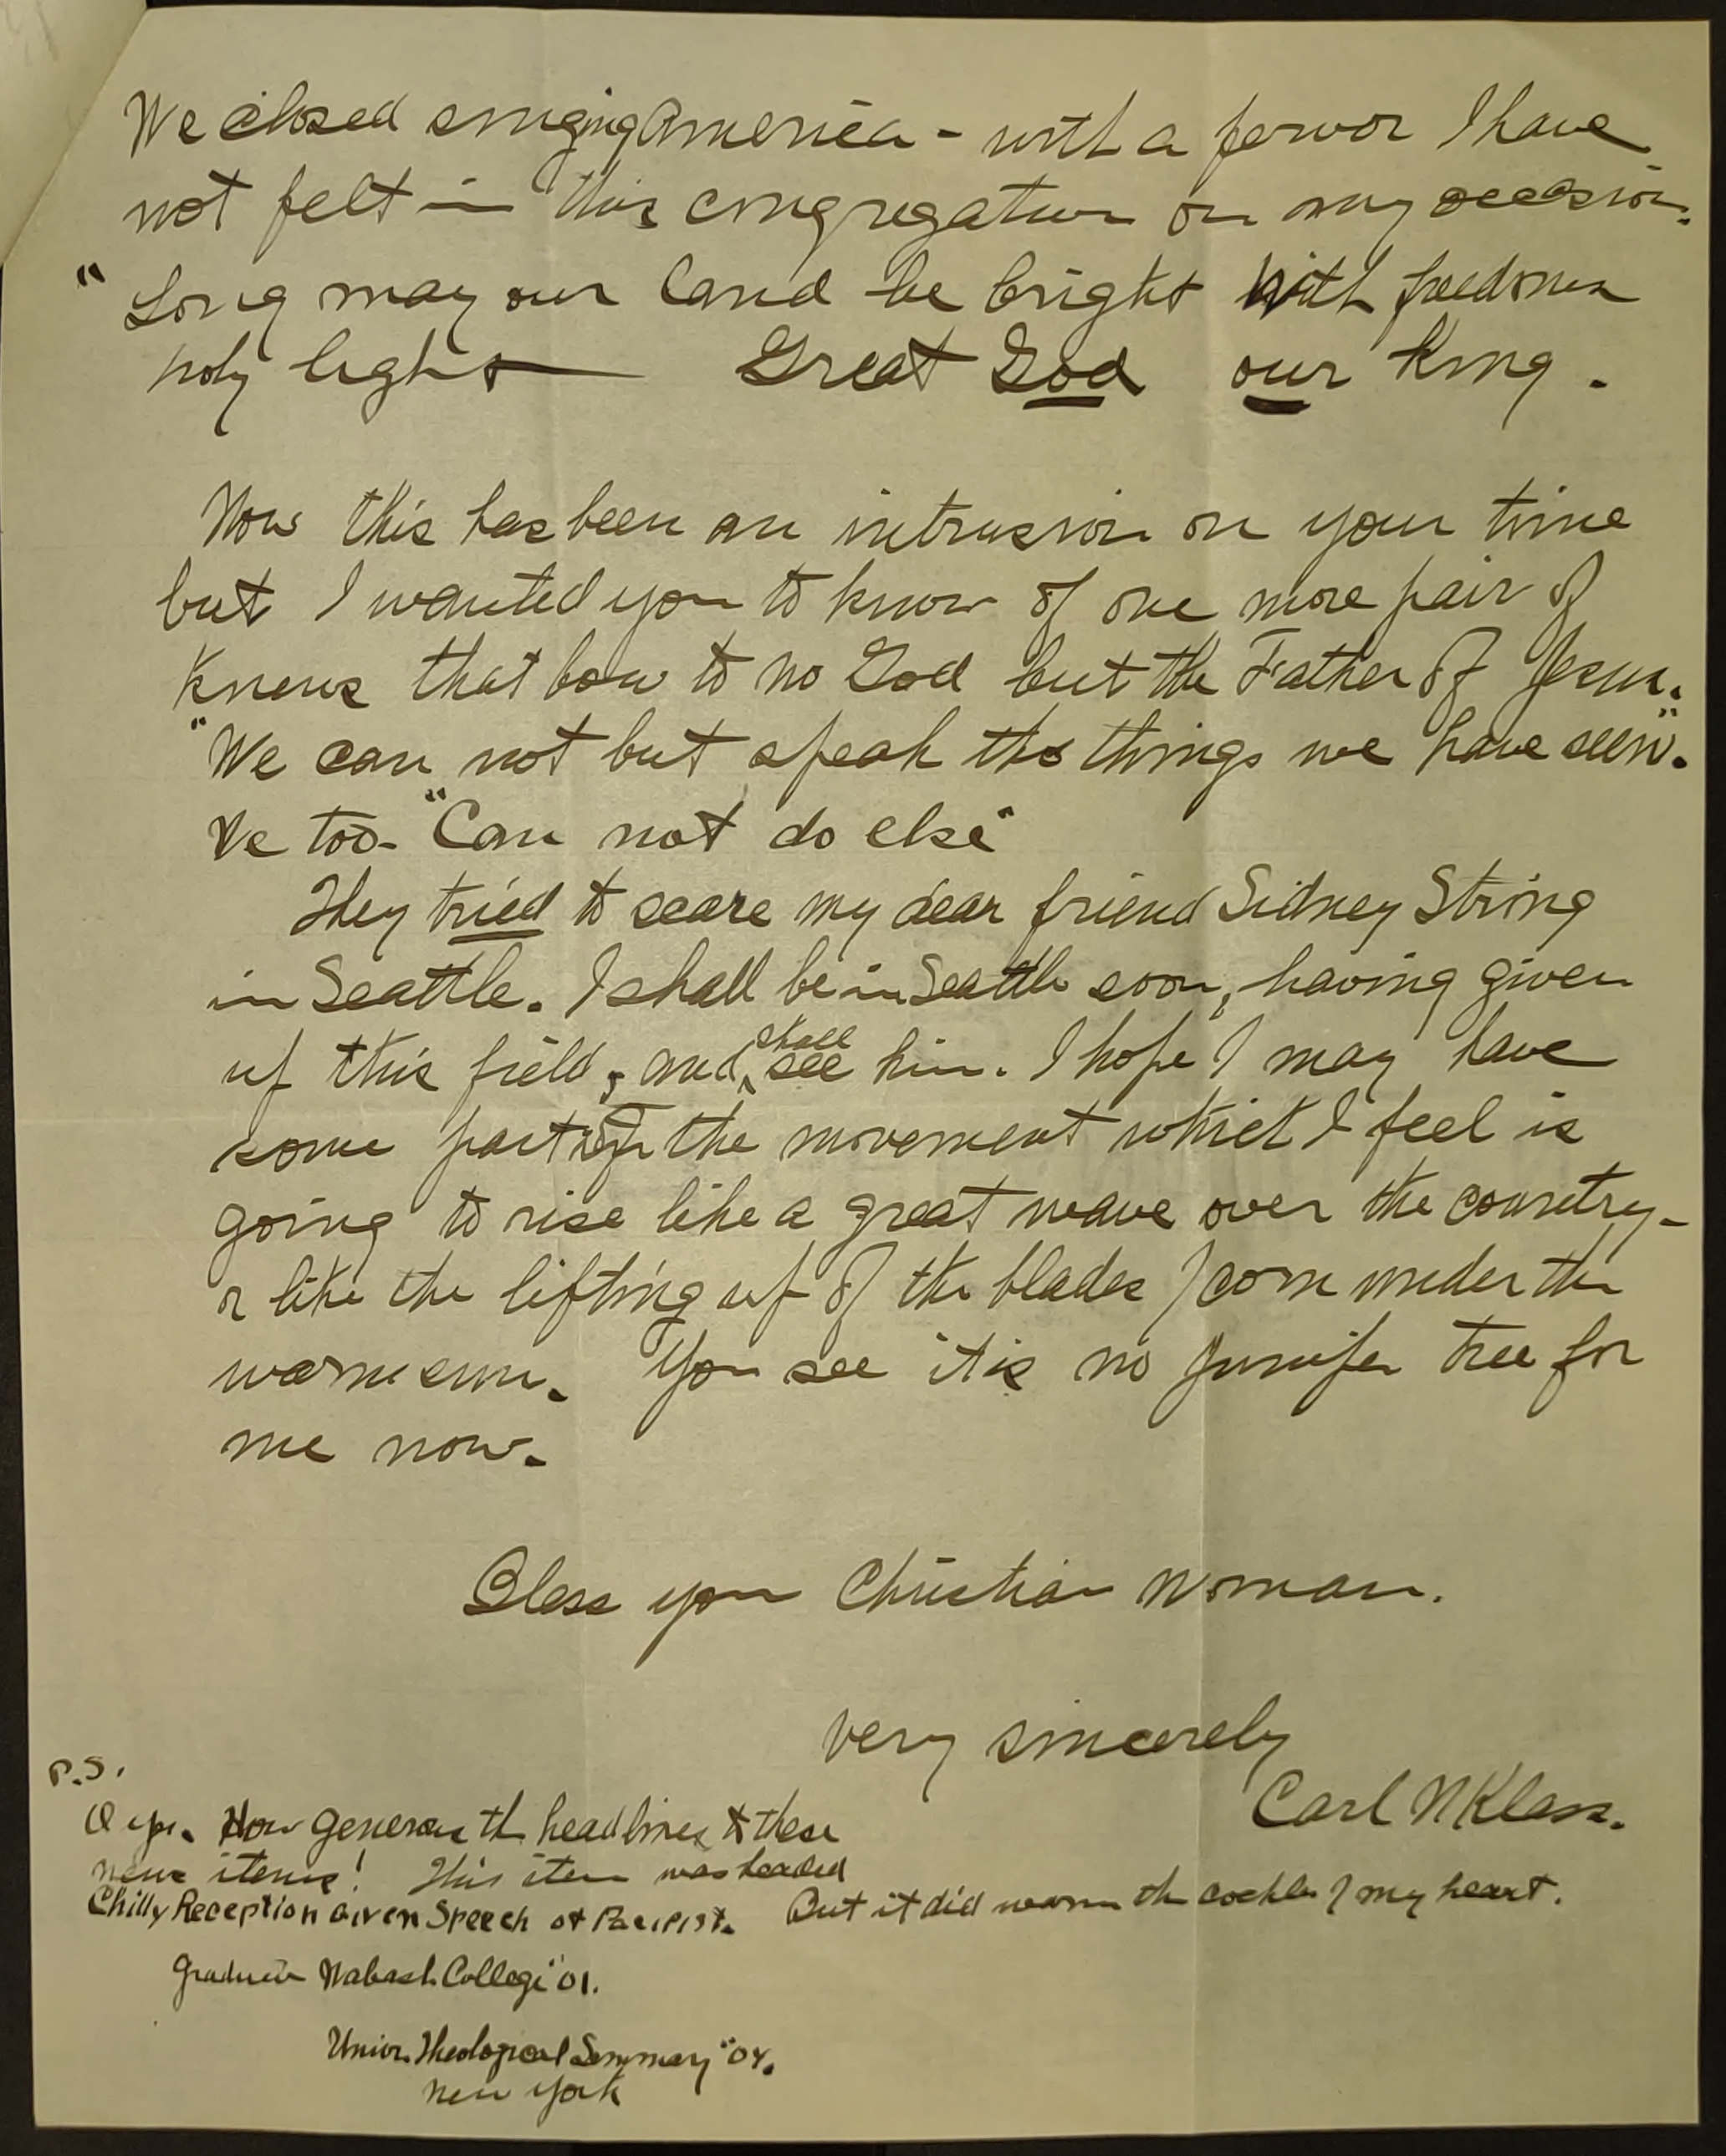 We closed singing America - with a fervor I have
not felt in this congregation on any occasion.
"Long may our land be bright With freedoms
holy light — Great God our King.
Now this has been an intrusion on your time
but I wanted you to know of one more pair of
Knees that bow to no God but the Father of Jesus.
"We can not but speak the things we have seen".
We too - "Can not do else"
They tried to scare my dear friend Sidney Strong
in Seattle. I shall be in Seattle soon, having given
up this field, and shall see him. I hope I may have
some part in the movement which I feel is
going to rise like a great wave over the country -
or like the lifting up of the blades of corn under the
warm sun. You see it is no Juniper tree for
me now.
Bless you Christian Woman.
Very sincerely
Carl N Klass.
P.S.
O yes. How generous the headlines to these
news items! This item was headed
Chilly Reception Given Speech of Pacifist. But it did warm the cockles of my heart.
Graduate Wabash College '01.
Union Theological Seminary '04.
New York